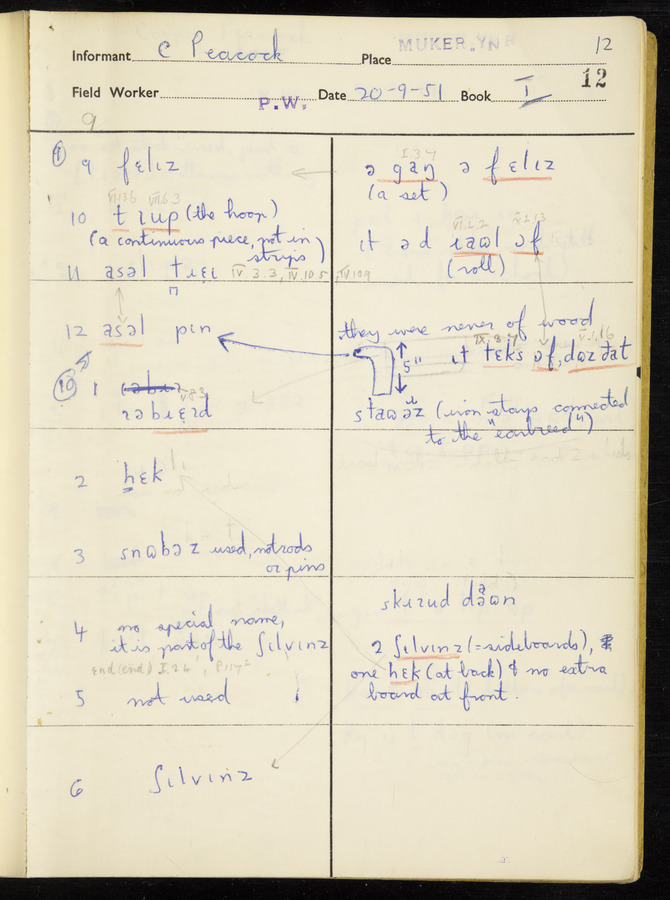 Informant C Peacock Place MUKER. YNR 12
12
Field Worker P.W. Date 20-9-51 Book I
9
① 9 fɛlɪz
I 3 7
ə gaŋ ə fɛlɪz
(a set)
VI.13.6 VII.6.3
10 t ɹup (the hoop)
(a continuous piece, not in strips)
VI.2.2 IX.2.13
ɪt əd ɹaʊl əf
(roll)
11 asəl tɹɛɪ IV 3.3, IV.10.5, IV 10.9
12 asəl pɪn
they were never of wood
5"
ɪt tɛks əf, dʊz ðat
⑩ 1
ɪəbɪɛɹd
staʊəz (iron stays connected
to the "earbreed")
2 hɛk
3 snʊbəz used, not rods
or pins
4 no special name,
it is part of the ʃɪlvɪnz
end (end) I.2.4
skɪɹud dəʊn
2 ʃɪlvɪnz (= sideboards),
one hɛk (at back) & no extra
board at front.
5 not used
6 ʃɪlvɪnz